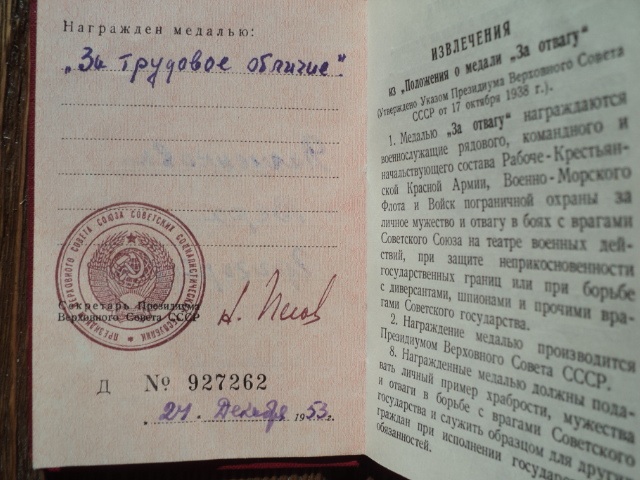 Награжден медалью:
„За трудовое обличие"
ПРЕЗИДИУМ ВЕРХОВНОГО СОВЕТА СОЮЗА СОВЕТСКИХ СОЦИАЛИСТИЧЕСКИХ РЕСПУБЛИК
Секретарь Президиума
Верховного Совета СССР
Д № 927262
24. Декабря 1953 г.
ИЗВЛЕЧЕНИЯ
из „Положения о медали „За отвагу"
(Утверждено Указом Президиума Верховного Совета
СССР от 17 октября 1938 г.).
1. Медалью „За отвагу" награждаются
военнослужащие рядового, командного и
начальствующего состава Рабоче-Крестьян-
ской Красной Армии, Военно-Морского
Флота и Войск пограничной охраны за
личное мужество и отвагу в боях с врагами
Советского Союза на театре военных дей-
ствий, при защите неприкосновенности
государственных границ или при борьбе
с диверсантами, шпионами и прочими вра-
гами Советского государства.
2. Награждение медалью производится
Президиумом Верховного Совета СССР.
8. Награжденные медалью должны пода-
вать личный пример храбрости, мужества
и отваги в борьбе с врагами Советского
государства и служить образцом для других
граждан при исполнении государст
обязанностей.